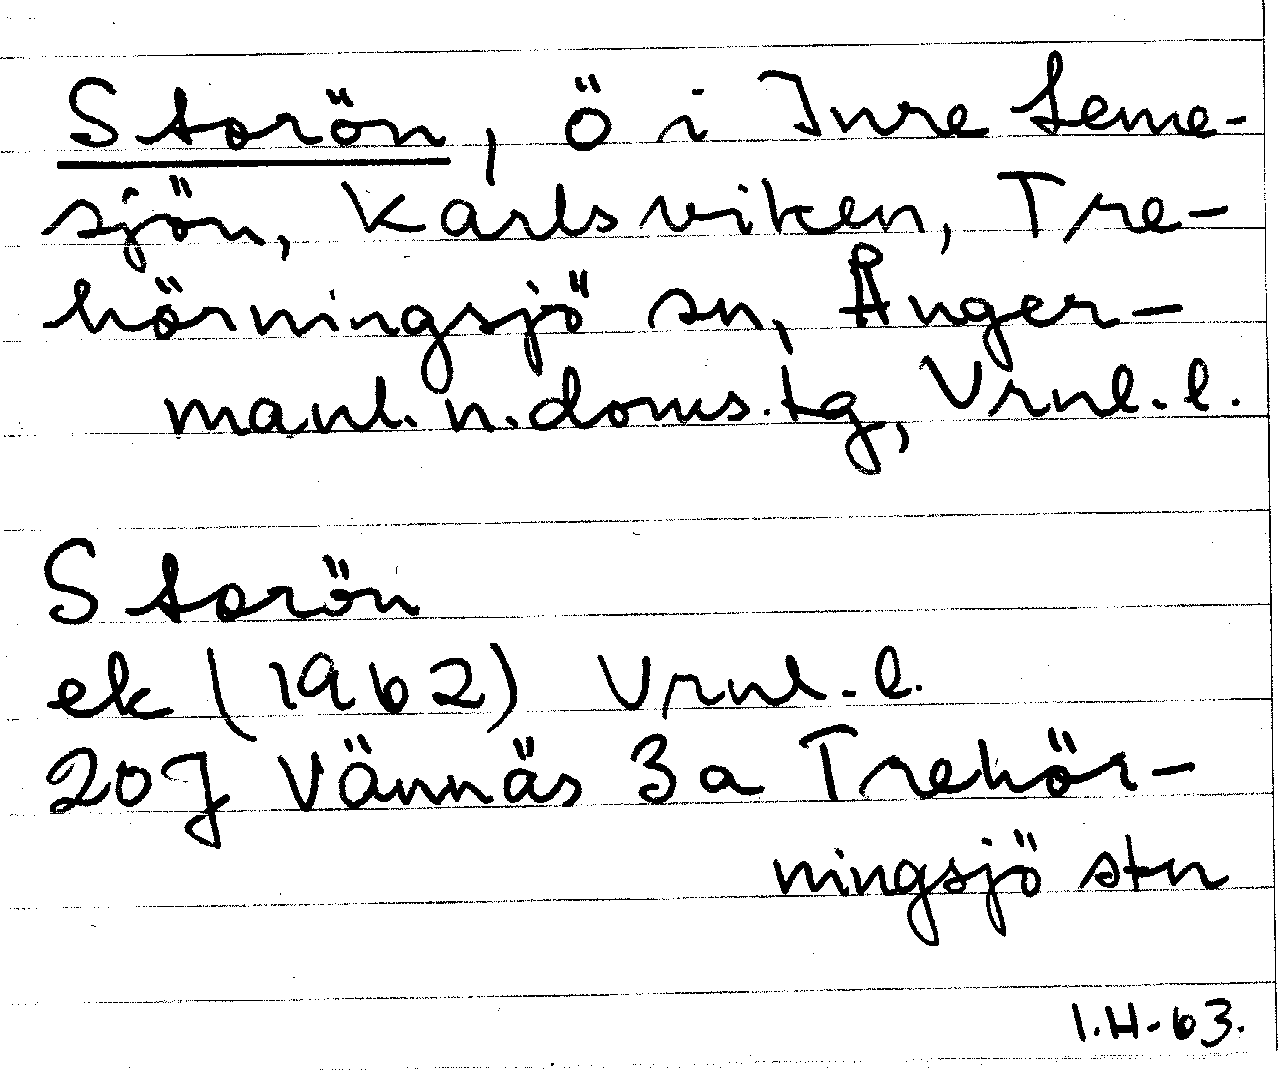 Storön, ö i Inre Leme-
sjön, Karlsviken, Tre-
hörningsjö sn, Ånger-
manl. n. doms. tg, Vrnl. l.
Storön
ek (1962) Vrnl. l.
20J Vännäs 3a Trehör-
ningsjö stn
I.H-63.